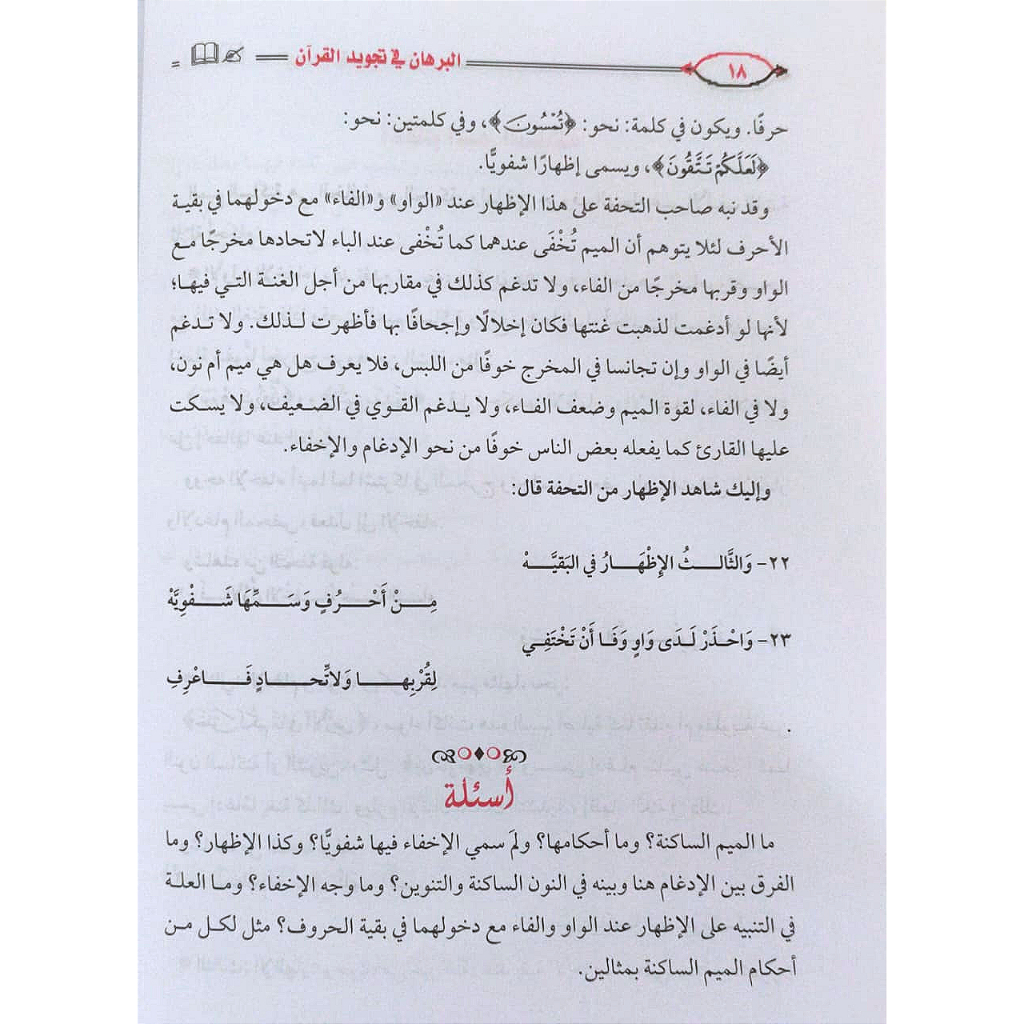 ١٨
البرهان في تجويد القرآن
حرفًا. ويكون في كلمة: نحو: ﴿تُمْسُونَ﴾، وفي كلمتين: نحو:
﴿لَعَلَّكُمْ تَتَّقُونَ﴾، ويسمى إظهارًا شفويًّا.
وقد نبه صاحب التحفة على هذا الإظهار عند «الواو» و«الفاء» مع دخولهما في بقية
الأحرف لئلا يتوهم أن الميم تُخْفَى عندهما كما تُخْفى عند الباء لاتحادها مخرجًا مع
الواو وقربها مخرجًا من الفاء، ولا تدغم كذلك في مقاربها من أجل الغنة التي فيها؛
لأنها لو أدغمت لذهبت غنتها فكان إخلالًا وإجحافًا بها فأظهرت لذلك. ولا تدغم
أيضًا في الواو وإن تجانسا في المخرج خوفًا من اللبس، فلا يعرف هل هي ميم أم نون،
ولا في الفاء، لقوة الميم وضعف الفاء، ولا يدغم القوي في الضعيف، ولا يسكت
عليها القارئ كما يفعله بعض الناس خوفًا من نحو الإدغام والإخفاء.
وإليك شاهد الإظهار من التحفة قال:
٢٢- وَالثَّالِثُ الإِظْهَارُ في البَقيَّهْ
مِنْ أَحْرُفٍ وَسَمِّهَا شَفْوِيَّهْ
٢٣- وَاحْذَرْ لَدَى وَاوٍ وَفَا أَنْ تَخْتَفِي
لِقُرْبِهَا وَلاتِّحَادٍ فَاعْرِفِ
.
أسئلة
ما الميم الساكنة؟ وما أحكامها؟ ولمَ سمي الإخفاء فيها شفويًّا؟ وكذا الإظهار؟ وما
الفرق بين الإدغام هنا وبينه في النون الساكنة والتنوين؟ وما وجه الإخفاء؟ وما العلة
في التنبيه على الإظهار عند الواو والفاء مع دخولهما في بقية الحروف؟ مثل لكل من
أحكام الميم الساكنة بمثالين.